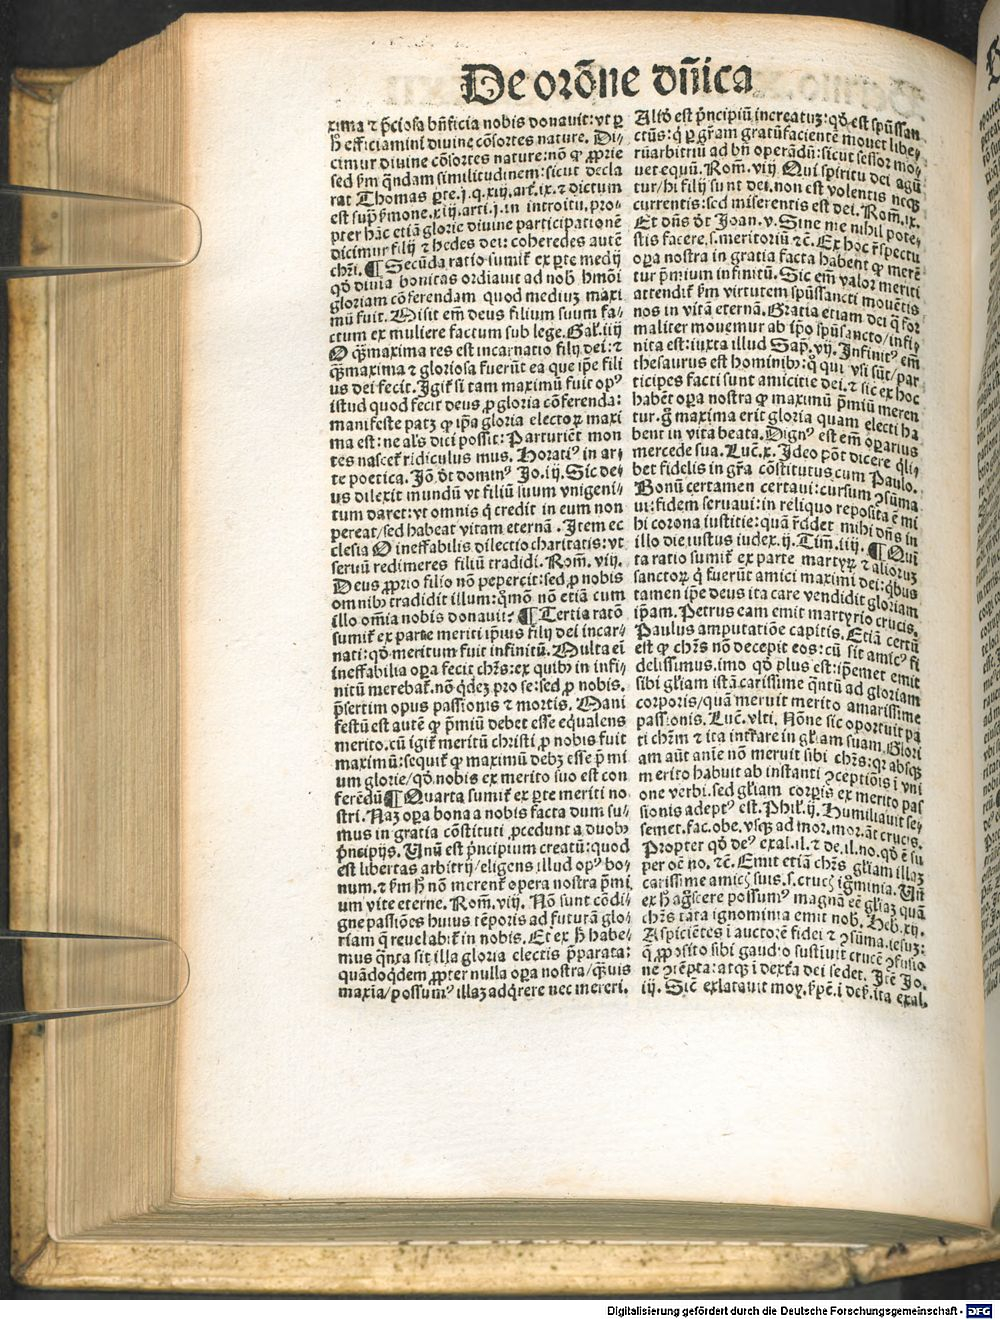 De orōne dn̄ica
xima ⁊ p̄ciosa bn̄ficia nobis donauit: vt ꝑ
h̄ efficiamini diuine cōsortes nature. Di⸗
cimur diuine cōsortes nature: nō ꝙ ꝓprie
sed ẜm qn̄dam similitudinem: sicut decla
rat Thomas ꝑte .j. q. xiij. art̄. ix. ⁊ dictum
est sup̄ ẜmone .xiij. arti. j. in introitu, pro⸗
pter hāc etiā glorie diuine participationē
dicimur filij ⁊ h̄edes dei: coheredes autē
chr̄i. ¶ Secūda ratio sumit̄ ex ꝑte medij
qō diuia bonitas ordiauit ad nob̄ hm̄oi
gloriam cōferendam quod mediuꝫ maxi
mū fuit. Misit em̄ deus filium suum fa⸗
ctum ex muliere factum sub lege. Gal̄. iiij
O qꝫmaxima res est incarnatio filij dei: ⁊
qꝫmaxima ⁊ gloriosa fuerūt ea que ip̄e fili
us dei fecit. Igit̄ si tam maximū fuit opꝰ
istud quod fecit deus ꝓ gloria cōferenda:
manifeste patꝫ ꝙ ip̄a gloria electoꝝ maxi
ma est: ne al̄s dici possit: Parturiēt mon
tes nascet̄ ridiculus mus. Horatiꝰ in ar⸗
te poetica. Jō dt̄ dominꝰ Jo. iij. Sic de⸗
us dilexit mundū vt filiū suum vnigeni⸗
tum daret: vt omnis q̄ credit in eum non
pereat/ sed habeat vitam eternā. Item ec
clesia O ineffabilis dilectio charitatis: vt
seruū redimeres filiū tradidi. Rom̄. viij.
Deus ꝓprio filio nō pepercit: sed ꝓ nobis
omnibꝰ tradidit illum: qūo nō etiā cum
illo om̄ia nobis donauit? ¶ Tertia ratō
sumit̄ ex parte meriti ip̄ius filij dei incar⸗
nati: qō meritum fuit infinitū. Multa ei
ineffabilia oꝑa fecit chr̄s: ex quibꝰ in infi⸗
nitū merebat̄. nō q̄deꝫ pro se: sed ꝓ nobis.
p̄sertim opus passionis ⁊ mortis. Mani
festū est autē ꝙ p̄miū debet esse equalens
merito. cū igit̄ meritū christi ꝓ nobis fuit
maximū: sequit̄ ꝙ maximū debꝫ esse p̄mi
um glorie/ qō nobis ex merito suo est con
ferēdū ¶ Quarta sumit̄ ex ꝑte meriti no
stri. Naꝫ oꝑa bona a nobis facta dum su⸗
mus in gratia cōstituti ꝓcedunt a duobꝰ
p̄ncipijs. Unū est p̄ncipium creatū: quod
est libertas arbitrij/ eligens illud opꝰ bo⸗
num. ⁊ ẜm h̄ nō merent̄ opera nostra p̄mi
um vite eterne. Rom̄. viij. Nō sunt cōdi⸗
gne passiōes huius tēporis ad futurā glo⸗
riam q̄ reuelabit̄ in nobis. Et ex h̄ habe⸗
mus qn̄ta sit illa gloria electis p̄parata:
quādoq̄dem ꝓpter nulla oꝑa nostra/ q̄uis
maxia/ possumꝰ illaꝫ adq̄rere nec mereri.
Aliō est p̄ncipiū increatuꝫ: qō est spūssan
ctus: q̄ ꝑ gr̄am gratūfacientē mouet libe⸗
rūarbitriū ad bn̄ operādū: sicut sessor mo⸗
uet equū. Rom̄. viij Qui spiritu dei agū
tur/ hi filij sunt dei. non est volentis neqꝫ
currentis: sed miserentis est dei. Rom̄. ix.
Et dn̄s dt̄ Joan. v. Sine me nihil pote⸗
stis facere. s. meritoriū ⁊c̄. Ex hoc r̄spectu
oꝑa nostra in gratia facta habent ꝙ merē
tur p̄mium infinitū. Sic em̄ valor meriti
attendit̄ ẜm virtutem spūssancti mouētis
nos in vitā eternā. Gratia etiam dei q̄ for
maliter mouemur ab ip̄o spūsancto/ infi⸗
nita est: iuxta illud Sap̄. vij. Infinitꝰ em̄
thesaurus est hominibꝰ: q̄ qui vsi sūt/ par
ticipes facti sunt amicitie dei. ⁊ sic ex hoc
habēt oꝑa nostra ꝙ maximū p̄miū meren
tur. g̊ maxima erit gloria quam electi ha
bent in vita beata. Dignꝰ est em̄ oꝑarius
mercede sua. Luc̄. x. Ideo pōt dicere q̄li⸗
bet fidelis in gr̄a cōstitutus cum Paulo.
Bonū certamen certaui: cursum ꝯsūma
ui: fidem seruaui: in reliquo reposita ē mi
hi corona iustitie: quā r̄ddet mihi dn̄s in
illo die iustus iudex. ij. Tim̄. iiij. ¶ Qui
ta ratio sumit̄ ex parte martyꝝ ⁊ alioruꝫ
sanctoꝝ q̄ fuerūt amici maximi dei: q̄bus
tamen ip̄e deus ita care vendidit gloriam
ip̄am. Petrus eam emit martyrio crucis.
Paulus amputatiōe capitis. Etiā certū
est ꝙ chr̄s nō decepit eos: cū sit amicꝰ fi
delissimus. imo qō plus est: ip̄emet emit
sibi gl̄iam istā carissime qn̄tū ad gloriam
corporis/ quā meruit merito amarissime
passionis. Luc̄. vlti. Nōne sic oportuit pa
ti chr̄m ⁊ ita intrare in gl̄iam suam. Glori
am aūt anīe nō meruit sibi chr̄s: qꝛ absqꝫ
merito habuit ab instanti ꝯceptiōis ⁊ vni
one verbi. sed gl̄iam corꝑis ex merito pas
sionis adeptꝰ est. Phil̄. ij. Humiliauit se⸗
semet. fac. obe. vsqꝫ ad mor. mor. āt crucis.
Propter qō deꝰ exal. il. ⁊ de. il. no. qō ē su
per oē no. ⁊c̄. Emit etiā chr̄s gl̄iam illaꝫ
carissime amicꝭ suis. s. crucꝭ ignominia. Un̄
ex h̄ agn̄scere possumꝰ magnā eē gl̄iaꝫ quā
chr̄s tāta ignominia emit nob̄. Heb. xij.
Aspiciētes ī auctorē fidei ⁊ ꝯsūma. iesuꝫ:
q̄ ꝓposito sibi gaudio sustinuit crucē ꝯfusio
ne ꝯtēpta: atqꝫ ī dext̄a dei sedet. Itē Jo.
iij. Sic̄ exaltauit moy. ẜpē. ī des̄. ita exal.
Digitalisierung gefördert durch die Deutsche Forschungsgemeinschaft - DFG